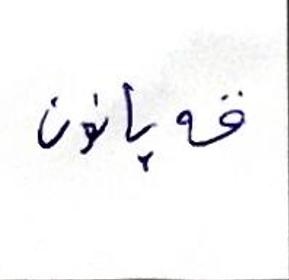 قه پانون